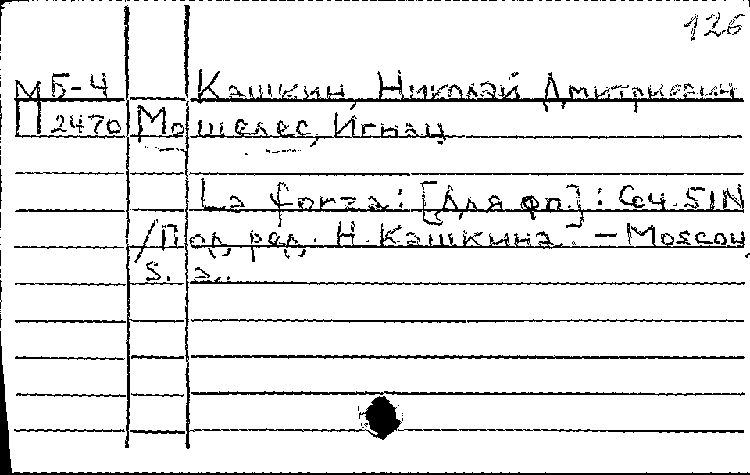 126
МБ-4 Кашкин, Николай Дмитриевич
П 2470 Мошелес, Игнац
La forza: [Для фп.]: Соч. 51N
/Под ред. Н. Кашкина. – Moscou,
s. a..